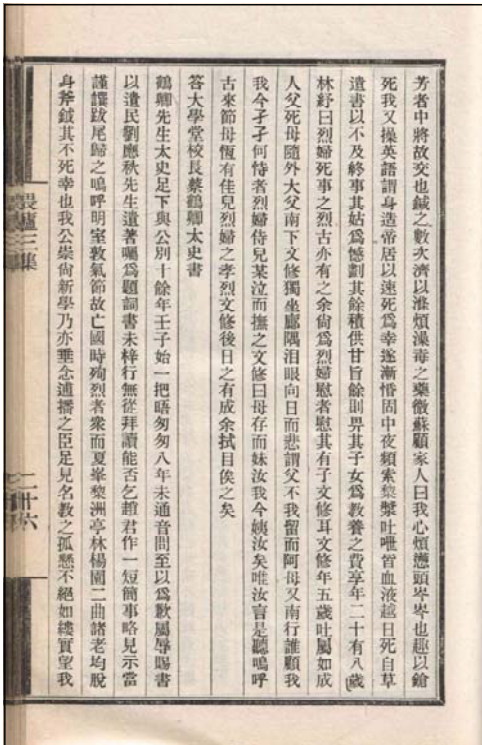 芳者中將故交也鍼之數次濟以滌煩瀉毒之藥微蘇顧家人曰我心煩懑頭岑岑也趣以鎗
死我又操英語謂身造帝居以速死爲幸遂漸惛固中夜頻索漿吐嚥皆血液越日死自草
遺書以不及終事其姑爲憾劃其餘積供甘旨餘則畀其子女爲教養之費享年二十有八歲
林紓曰烈婦死事之烈古亦有之余尙爲烈婦慰者慰其有子文修耳文修年五歲吐屬如成
人父死母隨外大父南下文修獨坐廊隅泪眼向日而悲謂父不我留而阿母又南行誰顧我
我今孑孑何恃者烈婦侍兒某泣而撫之文修曰母存而妹汝我今姨汝矣唯汝言是聽嗚呼
古來節母恆有佳兒烈婦之孝烈文修後日之有成余拭目俟之矣
答大學堂校長蔡鶴卿太史書
鶴卿先生太史足下與公別十餘年壬子始一把晤匆匆八年未通音問至以爲歉屬辱賜書
以遺民劉應秋先生遺著囑爲題詞書未梓行無從拜讀能否乞趙君作一短簡事略見示當
謹譔跋尾歸之嗚呼明室敦氣節故亡國時殉烈者衆而夏峯黎洲亭林楊園二曲諸老均脫
身斧鉞其不死幸也我公崇尙新學乃亦垂念逋播之臣足見名敎之孤懸不絕如縷實望我
畏廬三集
二十六